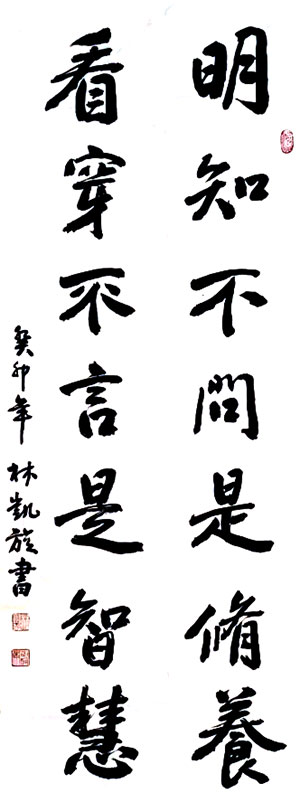 明知不問是脩養
看穿不言是智慧
癸卯年 林凱旋書